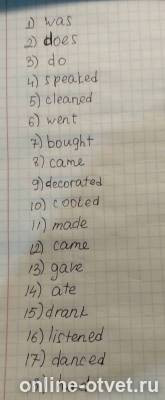 1) was
2) does
3) do
4) speaked
5) cleaned
6) went
7) bought
8) came
9) decorated
10) cooted
11) made
12) came
13) gave
14) ate
15) drank
16) listened
17) danced
online-otvet.ru